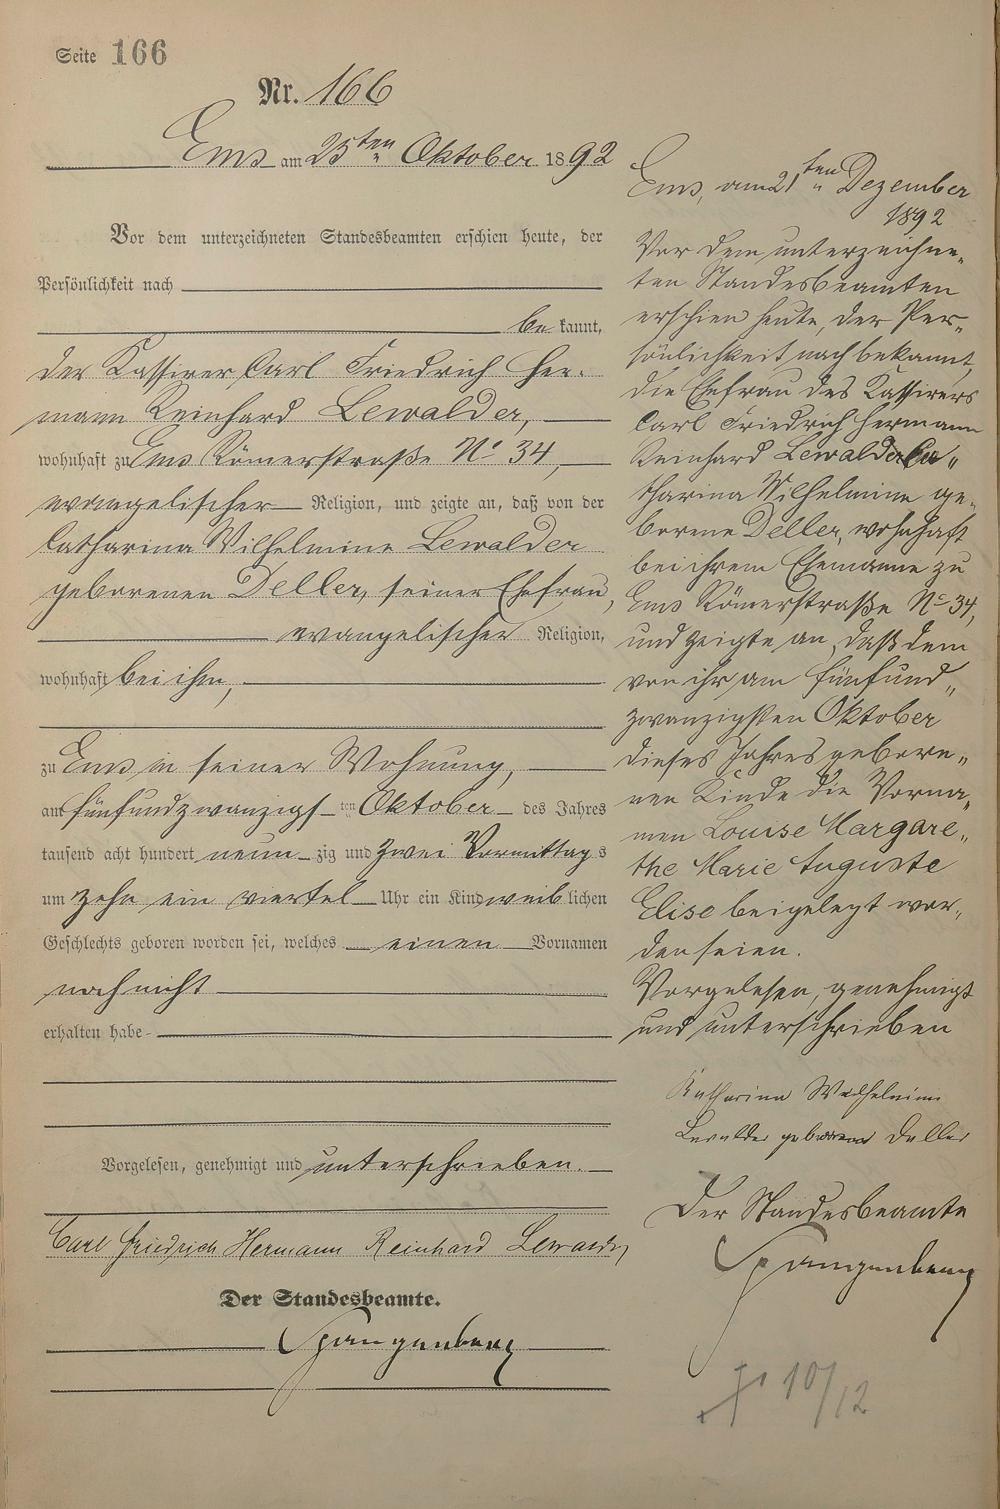 Seite 166
Nr. 166
Ems am 25ten Oktober 1892
Vor dem unterzeichneten Standesbeamten erschien heute, der
Persönlichkeit nach
be kannt,
der Kassirer Carl Friedrich Her-
mann Reinhard Lewalder,
wohnhaft zu Ems Römerstraße No 34,
evangelischer Religion, und zeigte an, daß von der
Catharina Wilhelmine Lewalder
geborenen Deller, seiner Ehefrau,
evangelischer Religion,
wohnhaft bei ihm,
zu Ems in seiner Wohnung,
am fünfundzwanzigsten Oktober des Jahres
tausend acht hundert neun zig und zwei Vormittags
um zehn ein viertel Uhr ein Kind weiblichen
Geschlechts geboren worden sei, welches einen Vornamen
noch nicht
erhalten habe
Vorgelesen, genehmigt und unterschrieben.
Carl Friedrich Hermann Reinhard Lewalder
Der Standesbeamte.
Spangenberg
Ems, am 21ten Dezember
1892
Vor dem unterzeichne-
ten Standesbeamten
erschien heute, der Per-
sönlichkeit nach bekannt,
die Ehefrau des Kassirers
Carl Friedrich Hermann
Reinhard Lewalder Ca-
tharina Wilhelmine ge-
borene Deller, wohnhaft
bei ihrem Ehemanne zu
Ems Römerstraße No 34,
und zeigte an, daß dem
von ihr am fünfund-
zwanzigsten Oktober
dieses Jahres gebore-
nen Kinde die Vorna-
men Louise Margare-
the Marie Auguste
Elise beigelegt wor-
den seien.
Vorgelesen, genehmigt
und unterschrieben
Katharina Wilhelmine
Lewalder geborene Deller
Der Standesbeamte
Spangenberg
10/12